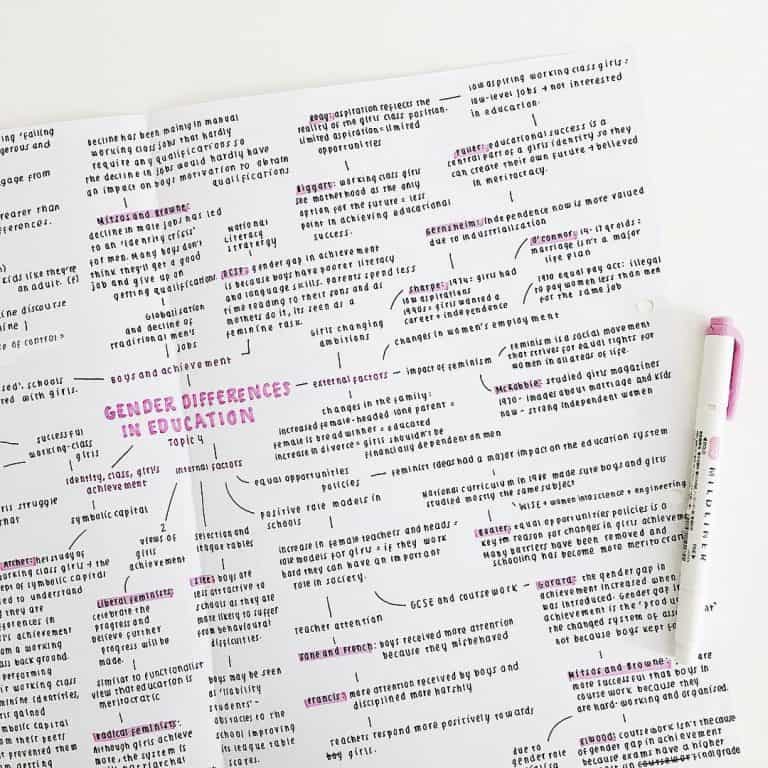 ing 'failing
gerous and
gage from
reater than
fferences.
kids like they're
an adult.
line discourse
ine )
of control=
sed'. schools
red with girls.
Decline has been mainly in manual
working class jobs that hardly
require any qualifications so
the decline in jobs would hardly have
an impact on boys motivation to obtain
qualifications
Mitsos and Browne:
decline in male jobs has led
to an 'identity crisis'
for men. Many boys don't
think they'll get a good
job and give up on
getting qualifications.
Globalisation
and decline of
traditional men's
jobs
National
literacy
stratergy
DCSF: gender gap in achievement
is because boys have poorer literacy
and language skills. Parents spend less
time reading to their sons and as
mothers do it, its seen as a
feminine task.
Boys and achievement
aspiration reflects the
reality of the girls class position.
limited aspiration = limited
opportunities
low aspiring working class girls:
low-level jobs + not interested
in education.
Biggart: working class girls
see motherhood as the only
option for the future = less
point in achieving educational
success.
Fuller: educational success is a
central part of a girls identity so they
can create their own future + believed
in meritocracy.
Gernsheim: Independence now is more valued
due to industrialisation
O'Connor: 14-17 yr olds:
marriage isn't a major
life plan
Sharpe: 1974: girls had
low aspirations
1990s = girls wanted a
career + independence
1970 equal pay act: illegal
to pay women less than men
for the same job
Girls changing
ambitions
changes in women's employment
GENDER DIFFERENCES
IN EDUCATION
Topic 4
external factors
impact of feminism
feminism is a social movement
that strives for equal rights for
women in all areas of life.
McRobbie: studied girls magazines
1970 - images about marriage and kids
now - strong independent women
changes in the family:
increased female-headed lone parent =
female is bread winner = educated
increase in divorce = girls shouldn't be
financially dependent on men
successful
working-class
girls
identity, class, girls
achievement
internal factors
equal opportunities
policies
feminist ideas had a major impact on the education system
National curriculum in 1988 made sure boys and girls
studied mostly the same subject
WISE = women into science + engineering
Boaler: equal opportunities policies is a
key reason for changes in girls achieveme
Many barriers have been removed and
schooling has become more meritocrat
positive role models in
schools
increase in female teachers and heads =
role models for girls = if they work
hard they can have an important
role in society.
GCSE and coursework
Gorard: the gender gap in
achievement increased when
was introduced. Gender gap i
achievement is the 'produ
the changed system of asse
not because boys kept fa
Mitsos and Browne: are
more successful than boys in
course work because they
are hard-working and organised.
Elwood: coursework isn't the cause
of gender gap in achievement
because exams have a higher
due to
gender role
teacher attention
Jane and French: boys received more attention
because they misbehaved
Francis: more attention received by boys and
disciplined more harshly
teachers respond more positively towards
boy girls.
selection and
league tables
boys are
less attractive to
schools as they are
more likely to suffer
from behavioural
difficulties.
boys may be seen
as 'liability
students' -
obstacles to the
school improving
its league table
scores.
2
views of
girls
achievement
Liberal feminists:
celebrate the
progress and
believe further
progress will be
made.
similar to functionalist
view that education is
meritocratic
Radical feminists:
Although girls achieve
more, the system is
patriarchal
symbolic capital
girls struggle
Archer: her study of
working class girls + the
concept of symbolic capital
to understand
they are
differences in
girl's achievement
from a working
class background.
performing
their working class
feminine identities,
gained
symbolic capital
from their peers
prevented them
from getting
MILDLINER